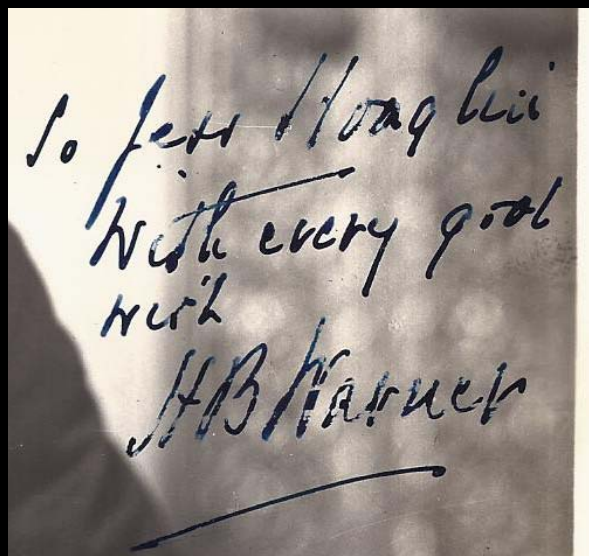 To Jess
With every good
wish
H B Warner